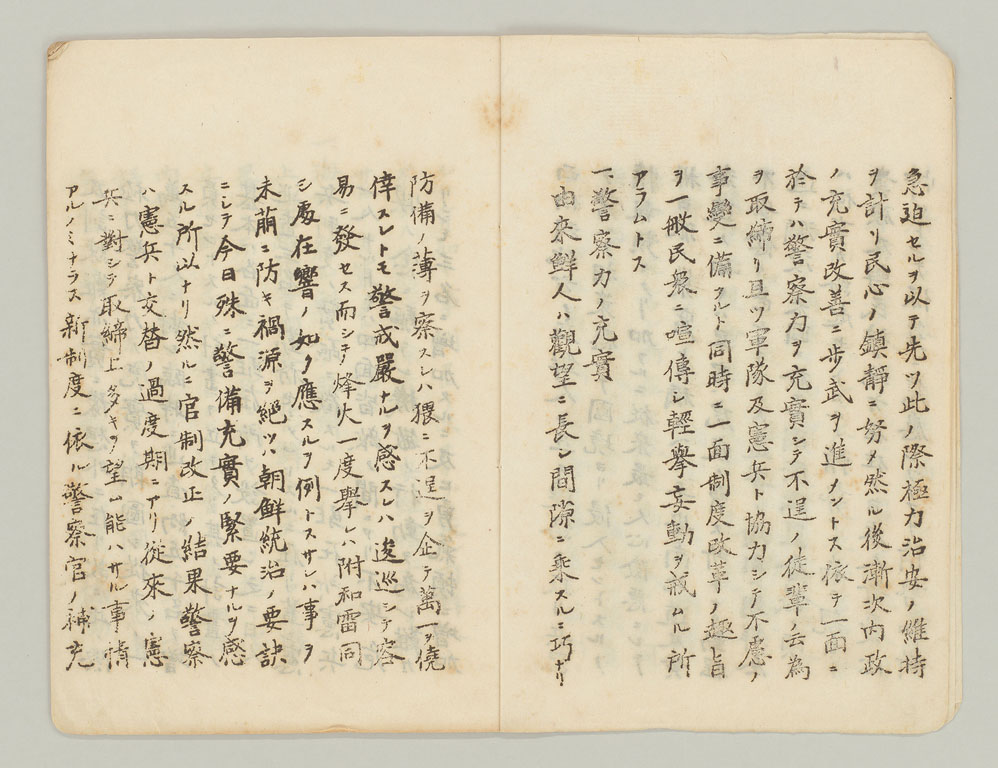 急迫セルヲ以テ先ツ此ノ際極力治安ノ維持
ヲ計リ民心ノ鎮靜ニ努メ然ル後漸次内政
ノ充實改善ニ歩武ヲ進メントス依テ一面ニ
於テハ警察力ヲ充實シテ不逞ノ徒輩ノ云為
ヲ取締リ且ツ軍隊及憲兵ト協力シテ不慮ノ
事變ニ備フルト同時ニ一面制度改革ノ趣旨
ヲ一般民衆ニ喧傳シ輕擧妄動ヲ戒ムル所
アラムトス
一、警察力ノ充實
由來鮮人ハ觀望ニ長シ間隙ニ乘スルニ巧ナリ
防備ノ薄ヲ察スレハ猥ニ不逞ヲ企テ萬一ヲ僥
倖スレトモ警戒嚴ナルヲ感スレハ逡巡シテ容
易ニ發セス而シテ烽火一度擧レハ附和雷同
シ處在響ノ如ク應スルヲ例トスサレハ事ヲ
未萠ニ防キ禍源ヲ絶ツハ朝鮮統治ノ要訣
ニシテ今日殊ニ警備充實ノ緊要ナルヲ感
スル所以ナリ然ルニ官制改正ノ結果警察
ハ憲兵ト交替ノ過度期ニアリ從來ノ憲
兵ニ對シテ取締上多キヲ望ム能ハサル事情
アルノミナラス新制度ニ依ル警察官ノ補充